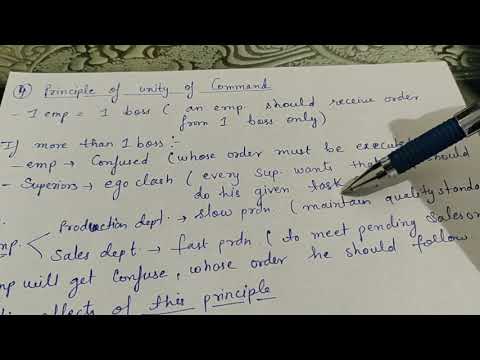 ④ Principle of unity of Command
- 1 emp = 1 boss ( an emp. should receive order
from 1 boss only)
If more than 1 boss :-
- emp → Confused (whose order must be execute
- Superiors → ego clash ( every sup. wants that should
do his given task
mp. Production dept. → slow prdn ( maintain quality standa
Sales dept. → fast prdn ( to meet pending sales or
mp will get Confuse, whose order he should follow
effects of this principle